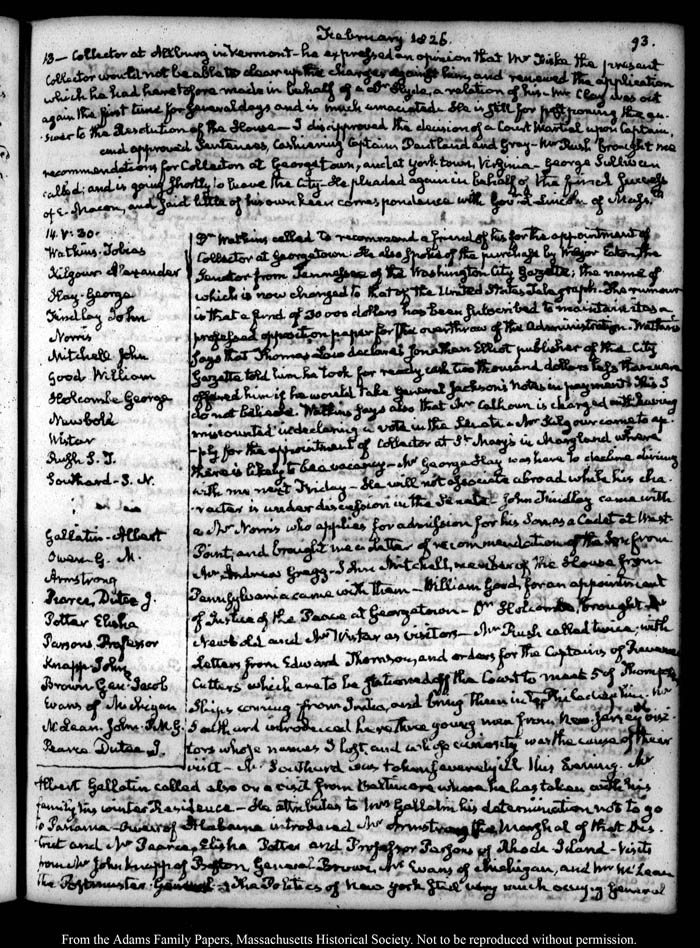 February 1826.
93.
13— Collector at Alburg in Vermont—he expressed an opinion that Mr Fiske the present
Collector would not be able to clear up the charges against him, and renewed the application
which he had heretofore made in behalf of a Dr Hyde, a relation of his. Mr Clay was out
again the first time for several days and is much emaciated. He is still for postponing the an-
swer to the Resolution of the House—I disapproved the decision of a Court Martial upon Captain
and approved Sentences, Cashiering Captain and Gray—Mr Rush brought me
recommendations for Collectors at Georgetown, and at York town, Virginia—George Sullivan
called; and is going shortly to leave the City—He pleaded again in behalf of the
of E. Macon, and said little of his own keen correspondence with Govr Lincoln of Masstts
14. V: 30.
Watkins. Tobias
Kilgour Alexander
Hay. George
Findlay John
Norris
Mitchell John
Good William
Holcombe George
Newbold
Wistar
Rush
Southard—S. L.
Gallatin—Albert
Owen—G. W.
Armstrong
Pearce, Dutee J.
Potter Elisha
Parsons, Professor
Knapp—John
Brown Gen: Jacob
Evans of Michigan
McLean, John. P.M.G.
Pearce Dutee J.
Dr Watkins called to recommend a friend of his for the appointment of
Collector at Georgetown. He also spoke of the purchase by Major Eaton, the
Senator from Tennessee of the Washington City Gazette; the name of
which is now changed to that of the United States Telegraph. The rumour
is that a fund of 30 000 dollars has been subscribed to maintain it as a
professed opposition paper for the overthrow of the Administration. Watkins
says that Thomas Law declares Jonathan Elliot publisher of the City
Gazette told him he took for ready cash two thousand dollars less than were
offered him if he would take General Jackson's Notes in payment. This I
do not believe. Watkins says also that Mr Calhoun is charged with having
miscounted in declaring a vote in the Senate. Mr Kilgour came to ap-
-ply for the appointment of Collector at St Mary's in Maryland where
there is likely to be a vacancy—Mr George Hay was here to decline dining
with me next Friday—He will not associate abroad while his cha-
racter is under discussion in the Senate—John Findlay came with
a Mr Norris who applies for admission for his Son as a Cadet at West-
Point, and brought me a letter of recommendation of the Son from
Mr Andrew Gregg—John Mitchell, member of the House from
Pennsylvania came with them—William Good, for an appointment
of Justice of the Peace at Georgetown—Dr Holcombe, brought Mr
Newbold and Mr Wistar as visitors—Mr Rush called twice, with
Letters from Edward Thomson, and orders for the Captains of Revenue
Cutters which are to be stationed off the Coast to meet 5 of Thompson's
Ships coming from India, and bring them in to Philadelphia. Mr
Southard introduced here three young men from New Jersey visi-
tors whose names I lost, and whose curiosity was the cause of their
visit—Mr Southard was taken severely ill this Evening. Mr
Albert Gallatin called also on a visit from Baltimore where he has taken with his
family his winter Residence—He attributes to Mrs Gallatin his determination not to go
to Panama—Owen of Alabama introduced Mr Armstrong the Marshal of that Dis-
trict and Mr Pearce, Elisha Potter and Professor Parsons of Rhode Island—Visits
from Mr John Knapp of Boston, General Brown, Mr Evans of Michigan, and Mr McLean
the Postmaster General—The Politics of New York still very much occupy General
From the Adams Family Papers, Massachusetts Historical Society. Not to be reproduced without permission.